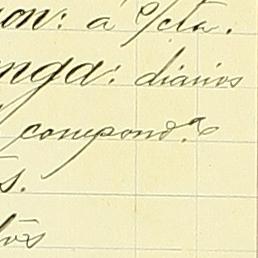 on: a c/cta.
nga: diarios
compond.ª
s.
tōs